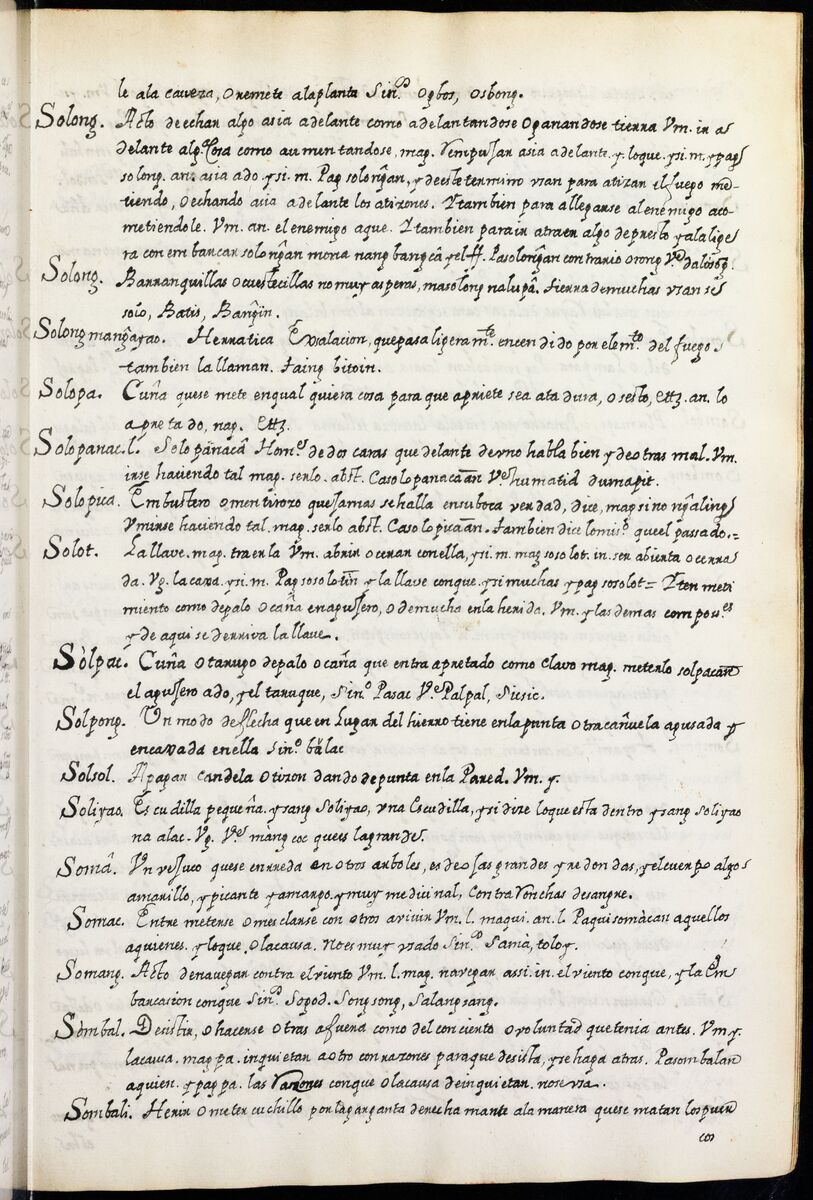 le ala caveza, o remete ala planta Sin.º Ogbos, Osbong.
Solong. Acto de echar algo asia adelante como adelantandose o ganandose tierra Vm. ir a
delante alg.ª Cosa como aumentandose, mag. Rempujar asia adelante. y. loque. ysi. m. ypag
solong. an. asia ado. ysi. m. Pag solongan, y de este termino usan para atizar el fuego me-
tiendo, o echando asia adelante los atizones. Ytambien para allegarse al enemigo aco-
metiendole. Vm. an. el enemigo aque. Ytambien para ir a traer algo de presto y ala lige
ra con embarcar solongan mona nang bangca yel ff. Pasolongan contrario orong Vº dalosog.
Solong. Barranquillas o cuestecillas no muy asperas, masolong na lupa. tierra de muchas usan sus
solo, Batis, Bangin.
Solong mangayao. Herratica Exsalacion, que pasa ligeram.te encendido por elem.to del fuego
tambien la llaman. taing bitoin.
Solopa. Cuña quese mete en qual quiera cosa para que apriete sea atadura, o sesto, ettz. an. lo
apretado, nag. ettz.
Solopanac. l. Solo panaca Hom.e de dos caras que delante de uno habla bien y deotras mal. Vm.
irse haciendo tal mag. serlo. abst. Casolopanacaan Vº humatid dumapit.
Solopica. Embustero o mentirozo que jamas se halla en su boca verdad, dice, mapsino ngaling
Vm irse haciendo tal. mag. serlo abst. Casolopicaan. tambien dice lomis.º que el passado.=
Solot. La llave. mag. traerla Vm. abrir o cerrar con ella, ysi. m. mag sosolot. in. ser abierta o cerra
da. Vg. la caxa. ysi. m. Pag sosolotin y la llave conque. ysi muchas ypag sosolot= Yten meti
miento como de palo o caña en agujero, o de mucha en la herida. Vm. y las demas compou.es
y de aqui se derriva la llave.
Sòlpac. Cuña o tarugo de palo o caña que entra apretado como clavo mag. meterlo solpacan
el agujero ado, yel taruque, Sin.º Pasac Vº Palpal, Sicsic.
Solpong. Un modo de flecha que en Lugar del hierro tiene en la punta otra cañuela agusada y
encaxada en ella Sin.º balac
Solsol. Apagar candela o tizon dando de punta en la Pared. Vm. y.
Soliyao. Escudilla pequeña. ysang Soliyao, una Escudilla, y si dize loque esta dentro ysang soliyao
na alac. Vg. Vº màngcoc que es la grande.
Somâ. Un vejuco quese enrreda en otros arboles, es de ojas grandes y redondas, y el cuerpo algo
amarillo, ypicante yamargo. y muy medicinal, contra ronchas de sangre.
Somac. Entre meterse o mesclarse con otros a vivir Vm. l. magui. an. l. Paquisomàcan aquellos
aquienes. y loque. o la causa. no es muy usado Sin.º Samà, toloy.
Somang. Acto de navegar contra el viento Vm. l. mag. navegar. assi. in. el viento conque, y la Em
barcacion conque Sin.º Sogod. Songsong, Salangsang.
Sòmbal. Desistir, o hacerse otras afuera como del concierto o voluntad que tenia antes. Vm y.
la causa. mag pa. inquietar a otro con razones para que desista, y se haga atras. Pasombalan
a quien. ypag pa. las Razones conque o la causa de inquietar. no se usa.
Sombali. Herir o meter cuchillo por la garganta derecha mante ala manera quese matan los puer
cos